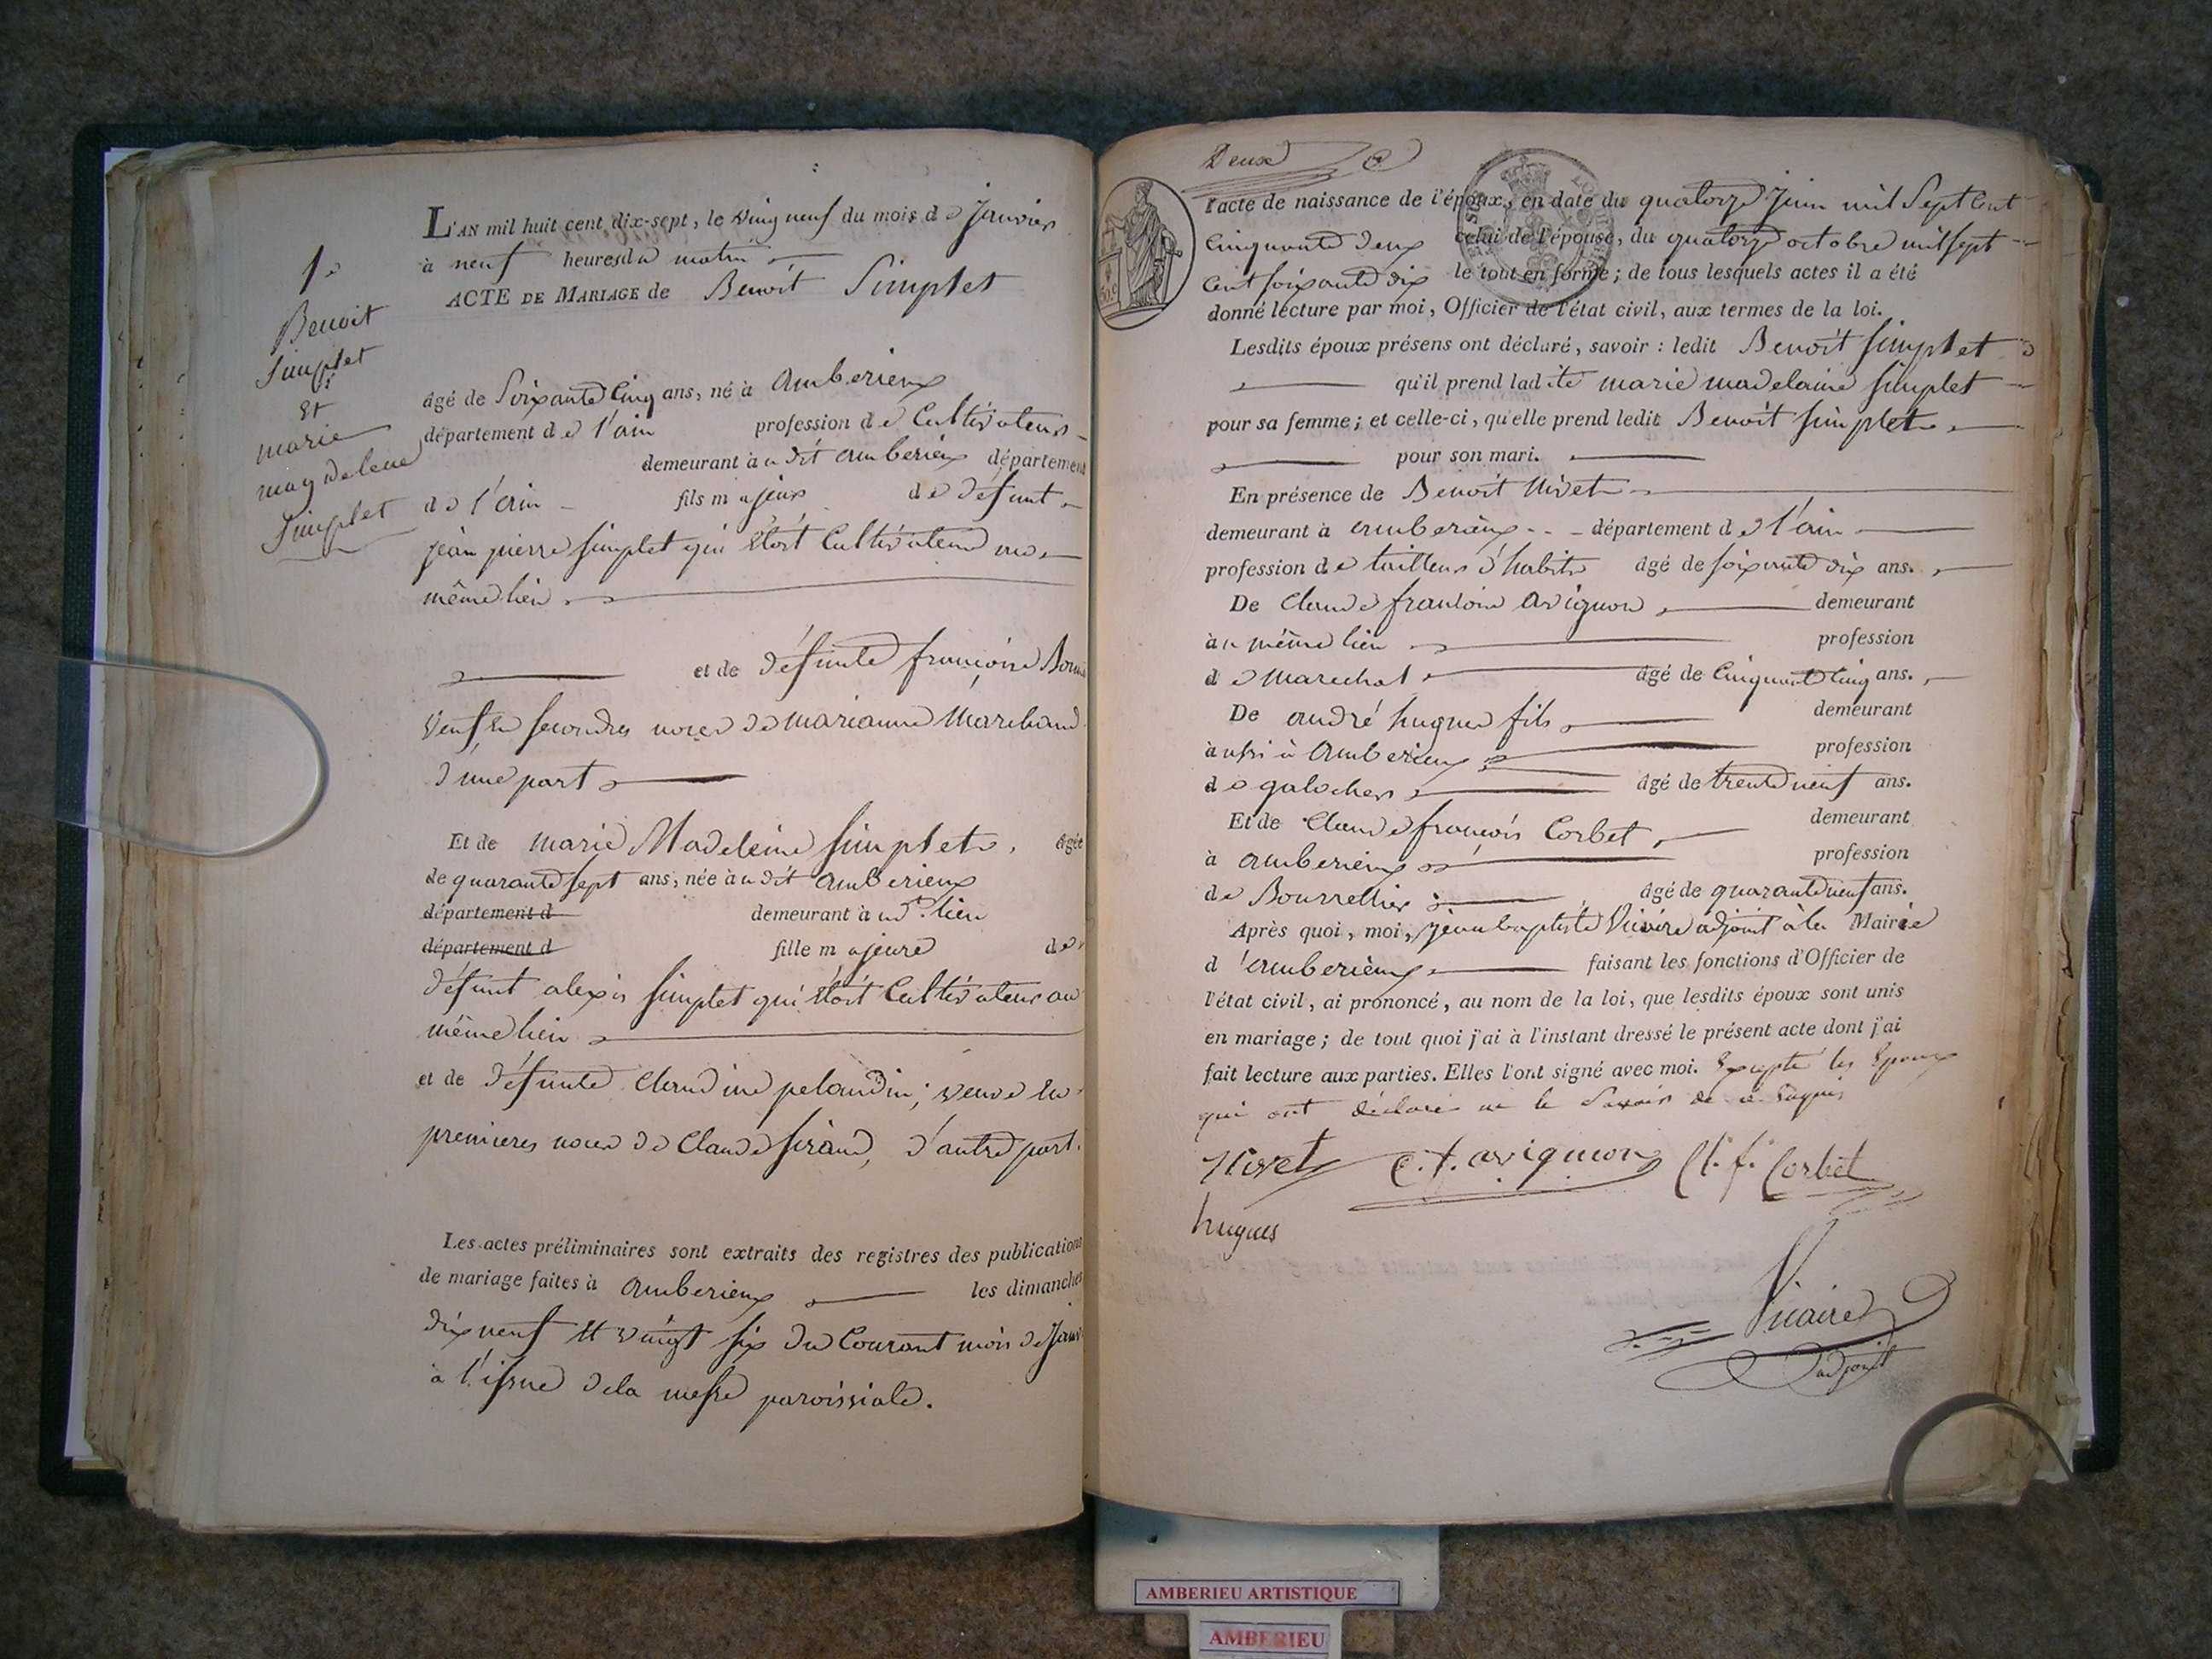 1.
Benoit
Simplet
et
marie
magdelene
Simplet
L'AN mil huit cent dix-sept, le vingt neuf du mois de Janvier
à neuf heures du matin
ACTE DE MARIAGE de Benoit Simplet
âgé de Soixante Cinq ans, né à Amberieux
département de l'ain profession de Cultivateur
demeurant au dit amberieux département
de l'ain fils majeur de défunt
jean pierre simplet qui étoit Cultivateur au
même lieu
et de défunte françoise
veuf en secondes noces de marianne Marchand
d'une part
Et de marie Madeleine simplet, âgée
de quarante sept ans, née au dit Amberieux
département d demeurant au dt. lieu
département d fille majeure de
défunt alexis simplet qui étoit Cultivateur au
même lieu
et de défunte Claudine pelandin, veuve en
premieres noces de Claude siraud, d'autre part.
Les actes préliminaires sont extraits des registres des publications
de mariage faites à amberieux les dimanches
dix neuf et vingt six du Courant mois de Janv
à l'issue de la messe paroissiale.
Deux
l'acte de naissance de l'époux, en date du quatorze Juin mil Sept Cent
Cinquante deux celui de l'épouse, du quatorze octobre mil sept
Cent soixante dix le tout en forme; de tous lesquels actes il a été
donné lecture par moi, Officier de l'état civil, aux termes de la loi.
Lesdits époux présens ont déclaré, savoir : ledit Benoit simplet
qu'il prend ladite marie madelaine simplet
pour sa femme; et celle-ci, qu'elle prend ledit Benoit simplet
pour son mari.
En présence de Benoit Nivet
demeurant à amberieux département de l'ain
profession de tailleur d'habits âgé de soixante dix ans.
De Claude françois avignon demeurant
au même lieu profession
de marechal âgé de Cinquante Cinq ans.
De andré hugues fils demeurant
aussi à amberieux profession
de galocher âgé de trente neuf ans.
Et de Claude françois Corbet demeurant
à amberieux profession
de Bourrellier âgé de quarante neuf ans.
Après quoi, moi, jean baptiste Vicaire adjoint à la Mairie
d'amberieux faisant les fonctions d'Officier de
l'état civil, ai prononcé, au nom de la loi, que lesdits époux sont unis
en mariage; de tout quoi j'ai à l'instant dressé le présent acte dont j'ai
fait lecture aux parties. Elles l'ont signé avec moi. Excepté les Epoux
qui ont déclaré ne le Savoir de ce requis
Nivet C. f. avignon Cl. f. Corbet
hugues
Vicaire
adjoint
AMBERIEU ARTISTIQUE
AMBERIEU